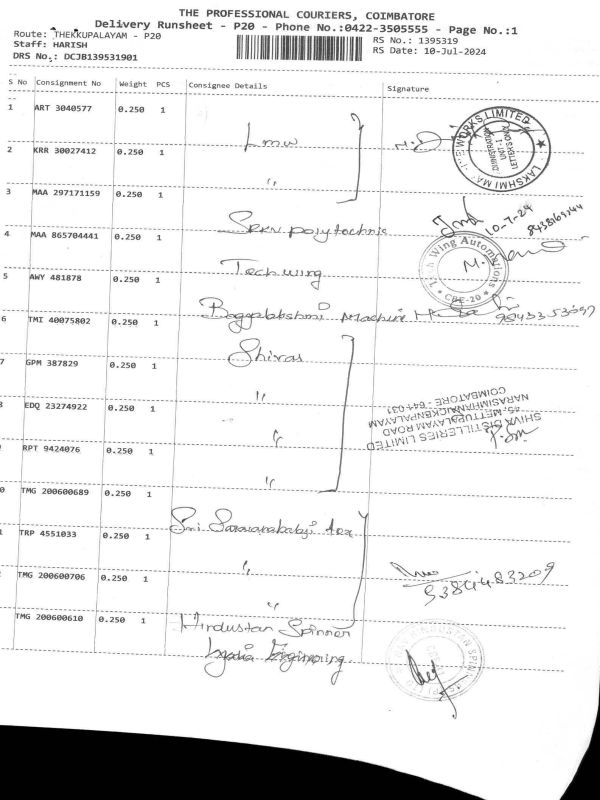 THE PROFESSIONAL COURIERS, COIMBATORE
Delivery Runsheet - P20 - Phone No.:0422-3505555 - Page No.:1
Route: THEKKUPALAYAM - P20
RS No.: 1395319
Staff: HARISH
RS Date: 10-Jul-2024
DRS No.: DCJB139531901
S No Consignment No Weight PCS Consignee Details Signature
1 ART 3040577 0.250 1 Lmw
2 KRR 30027412 0.250 1 "
WORKS LIMITED
LAKSHMI
UNIT - 1
LETTERS ONLY
3 MAA 297171159 0.250 1 SRKV polytechnic
10-7-24
4 MAA 865704441 0.250 1 Tech wing
Tech Wing Automations
CBE-20
5 AWY 481878 0.250 1
6 TMI 40075802 0.250 1 Shivas
7 GPM 387829 0.250 1 "
8 EDQ 23274922 0.250 1 "
SHIVA DISTILLERIES LIMITED
45, METTUPALAYAM ROAD
NARASIMHANAICKENPALAYAM
COIMBATORE - 641 031
RPT 9424076 0.250 1 "
0 TMG 200600689 0.250 1 Sri
1 TRP 4551033 0.250 1 "
TMG 200600706 0.250 1 "
9384483209
TMG 200600610 0.250 1 Hindustan Spinner